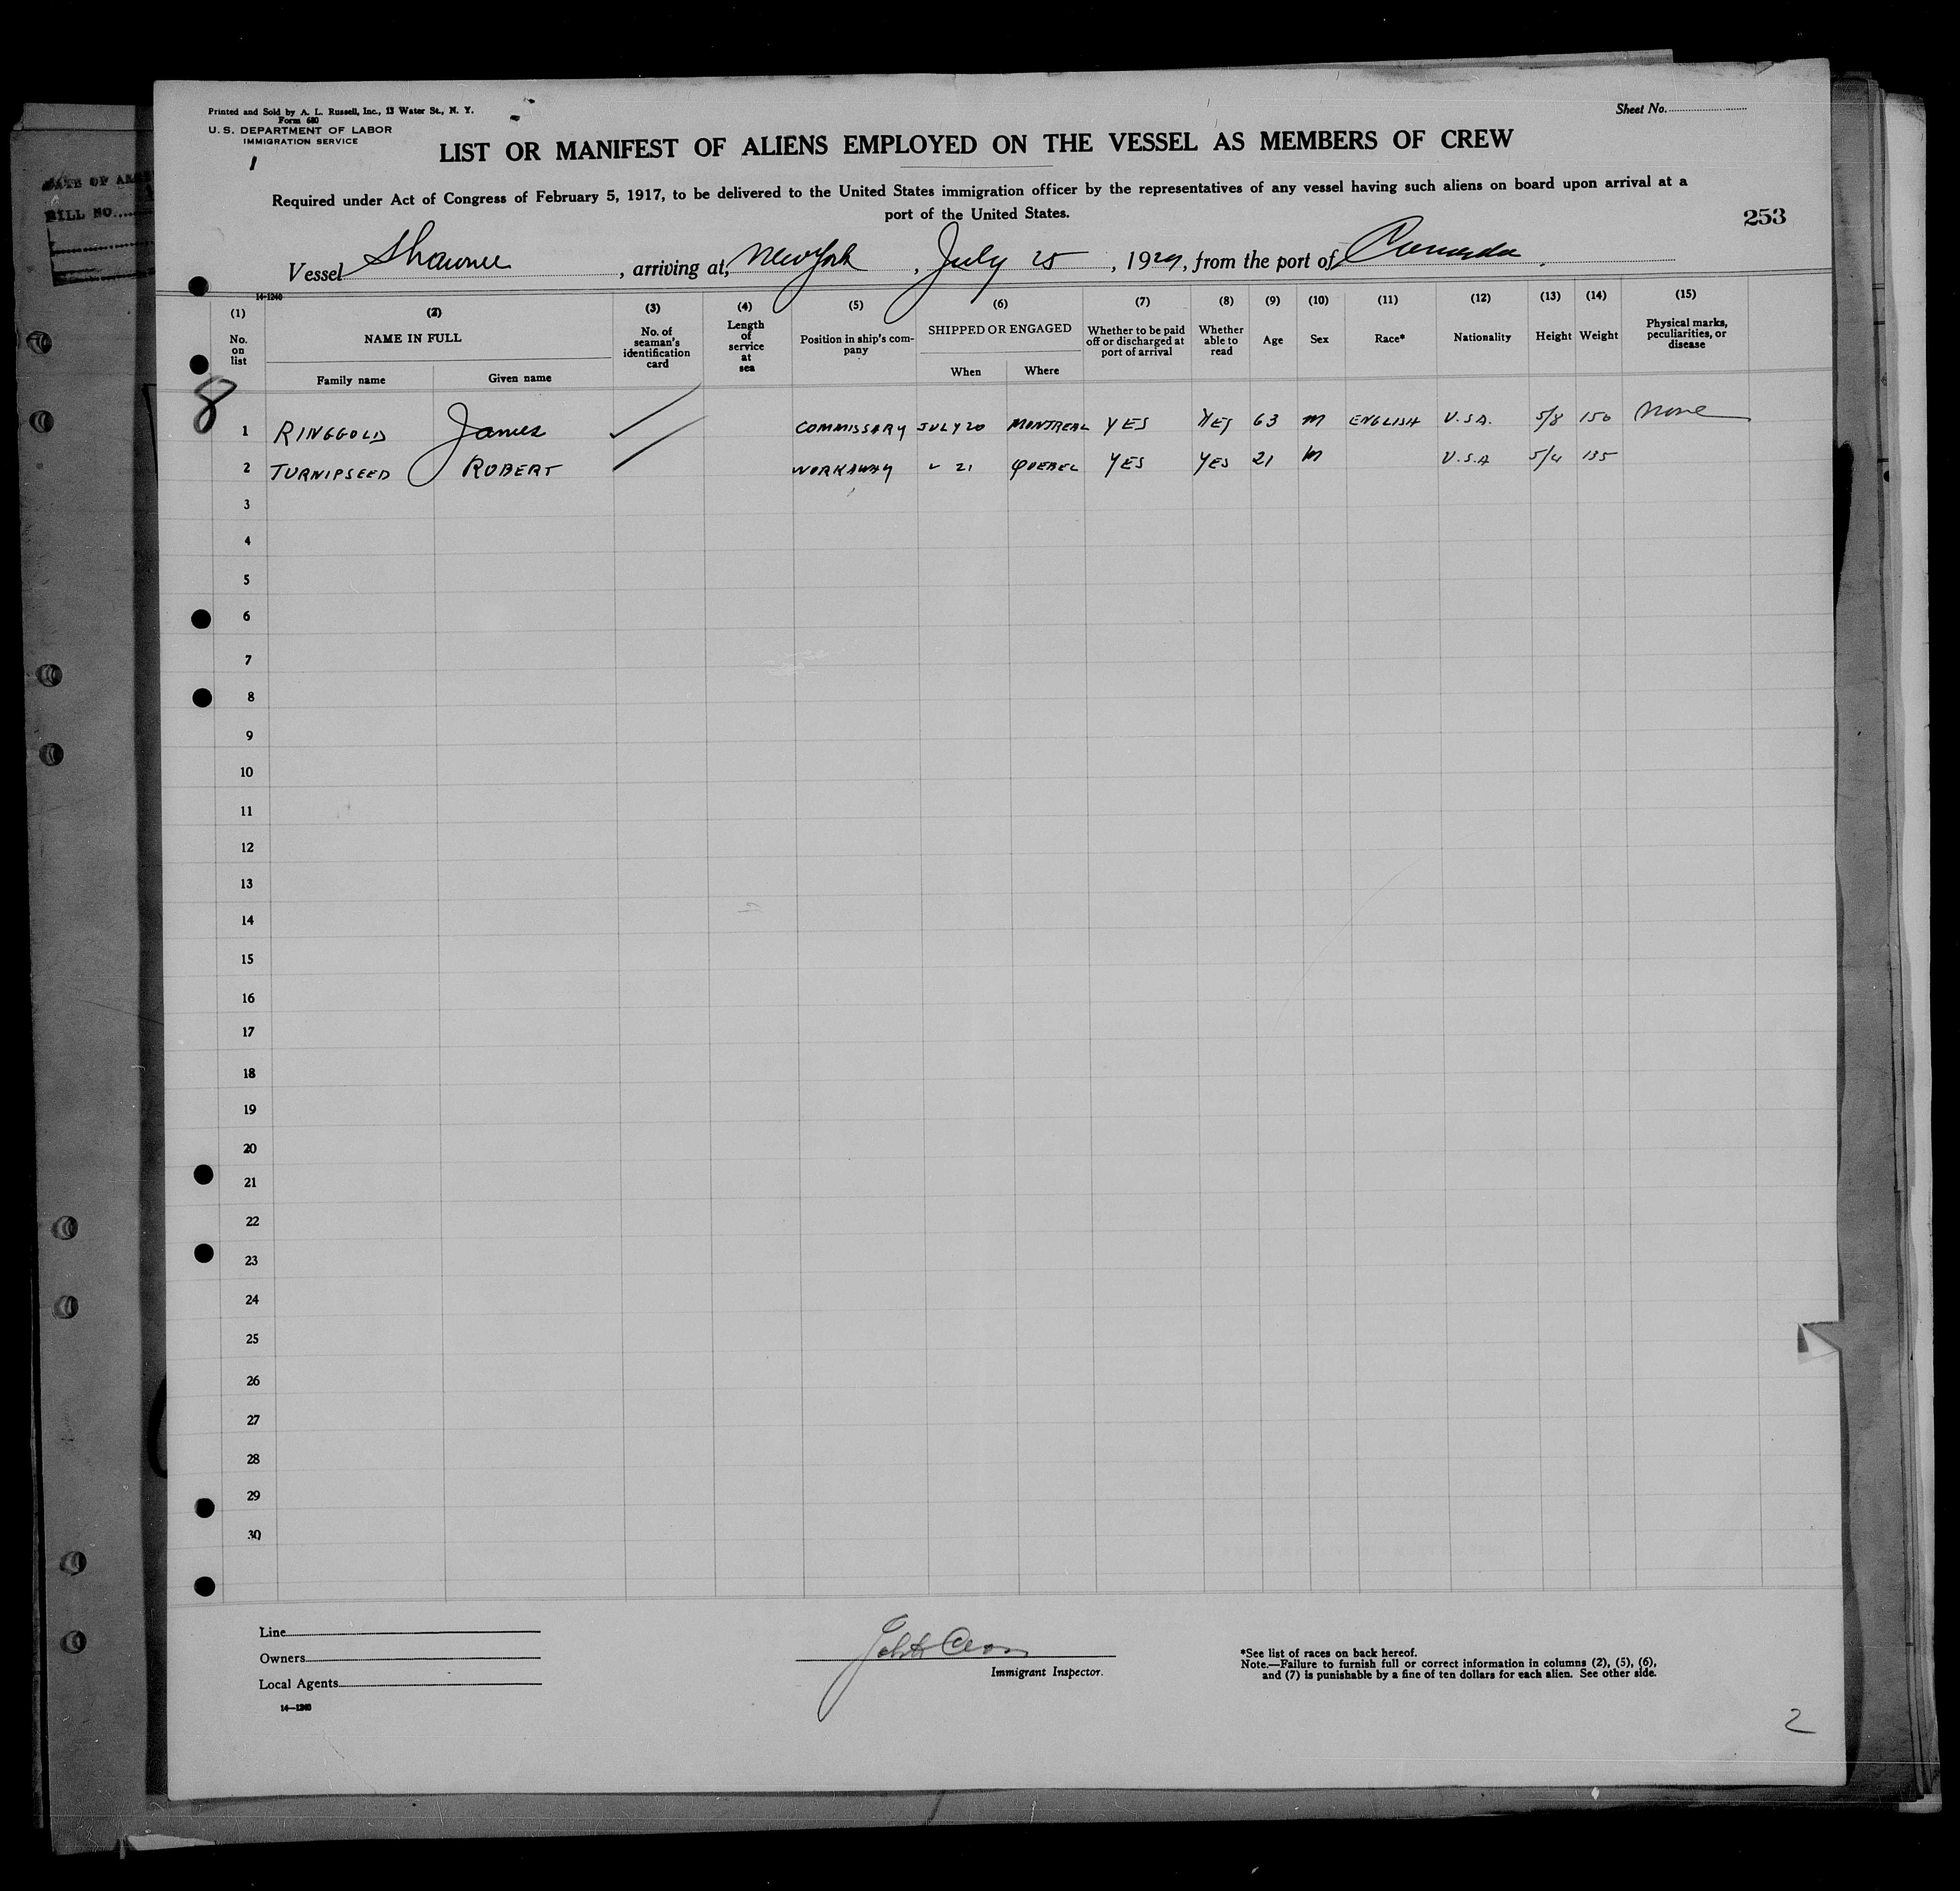 Printed and Sold by A. L. Russell, Inc., 13 Water St., N. Y.
Form 680
U. S. DEPARTMENT OF LABOR
IMMIGRATION SERVICE
1
Sheet No.
LIST OR MANIFEST OF ALIENS EMPLOYED ON THE VESSEL AS MEMBERS OF CREW
Required under Act of Congress of February 5, 1917, to be delivered to the United States immigration officer by the representatives of any vessel having such aliens on board upon arrival at a
port of the United States.
253
BILL NO.
Vessel Shawnee, arriving at, New York, July 25, 1929, from the port of
14-1240
(1) (2) (3) (4) (5) (6) (7) (8) (9) (10) (11) (12) (13) (14) (15)
No. on list
NAME IN FULL
Family name Given name
No. of seaman's identification card
Length of service at sea
Position in ship's company
SHIPPED OR ENGAGED
When Where
Whether to be paid off or discharged at port of arrival
Whether able to read
Age
Sex
Race*
Nationality
Height
Weight
Physical marks, peculiarities, or disease
8
1 RINGGOLD James COMMISSARY JULY 20 MONTREAL YES YES 63 M ENGLISH U.S.A. 5/8 150 None
2 TURNIPSEED ROBERT WORKAWAY 21 QUEBEC YES YES 21 M U.S.A 5/4 135
3
4
5
6
7
8
9
10
11
12
13
14
15
16
17
18
19
20
21
22
23
24
25
26
27
28
29
30
Line
Owners
Local Agents
14—1240
Immigrant Inspector.
*See list of races on back hereof.
Note.—Failure to furnish full or correct information in columns (2), (5), (6),
and (7) is punishable by a fine of ten dollars for each alien. See other side.
2